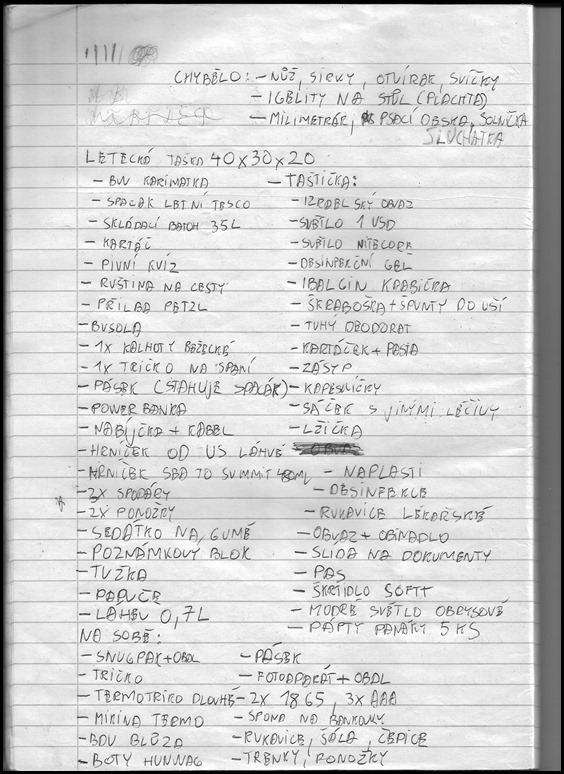 CHYBĚLO: - NŮŽ, SIRKY, OTVÍRÁK, SVÍČKY
- IGELITY NA STŮL (PLACHTA)
- MILIMETRÁK, PSACÍ DESKA, SOLNIČKA
SLUCHÁTKA
LETECKÁ TAŠKA 40x30x20
- BW KARIMATKA
- SPACÁK LETNÍ TESCO
- SKLÁDACÍ BATOH 35L
- KARTÁČ
- PIVNÍ KVÍZ
- RUŠTINA NA CESTY
- PŘILBA PETZL
- BUSOLA
- 1x KALHOTY BĚŽECKÉ
- 1x TRIČKO NA SPANÍ
- PÁSEK (STAHUJE SPACÁK)
- POWERBANKA
- NABÍJEČKA + KABEL
- HRNÍČEK OD US LÁHVE
- HRNÍČEK SEA TO SUMMIT 480ML
- 2X SPODÁRY
- 2X PONOŽKY
- SEDÁTKO NA GUMĚ
- POZNÁMKOVÝ BLOK
- TUŽKA
- PAPUČE
- LÁHEV 0,7L
- TAŠTIČKA:
- IZRAELSKÝ OBVAZ
- SVĚTLO 1 USD
- SVĚTLO NITECORE
- DESINFEKČNÍ GEL
- IBALGIN KRABIČKA
- ŠKRABOŠKA + ŠPUNTY DO UŠÍ
- TUHÝ DEODORAT
- KARTÁČEK + PASTA
- ZÁSYP
- KAPESNÍČKY
- SÁČEK S JINÝMI LÉČIVY
- LŽIČKA
- NÁPLASTI
- DESINFEKCE
- RUKAVICE LÉKAŘSKÉ
- OBVAZ + OBINADLO
- SLÍDA NA DOKUMENTY
- PAS
- ŠKRTIDLO SOFTT
- MODRÉ SVĚTLO OBRYSOVÉ
- PÁRTY PANÁKY 5 KS
NA SOBĚ:
- SNUGPAK + OBAL
- TRIČKO
- TERMOTRIKO DLOUHÉ
- MIKINA TERMO
- BDU BLŮZA
- BOTY HUNWAG
- PÁSEK
- FOTOAPARÁT + OBAL
- 2X 1865, 3X AAA
- SPONA NA BANKOVKY
- RUKAVICE, ŠÁLA, ČEPICE
- TRENKY, PONOŽKY